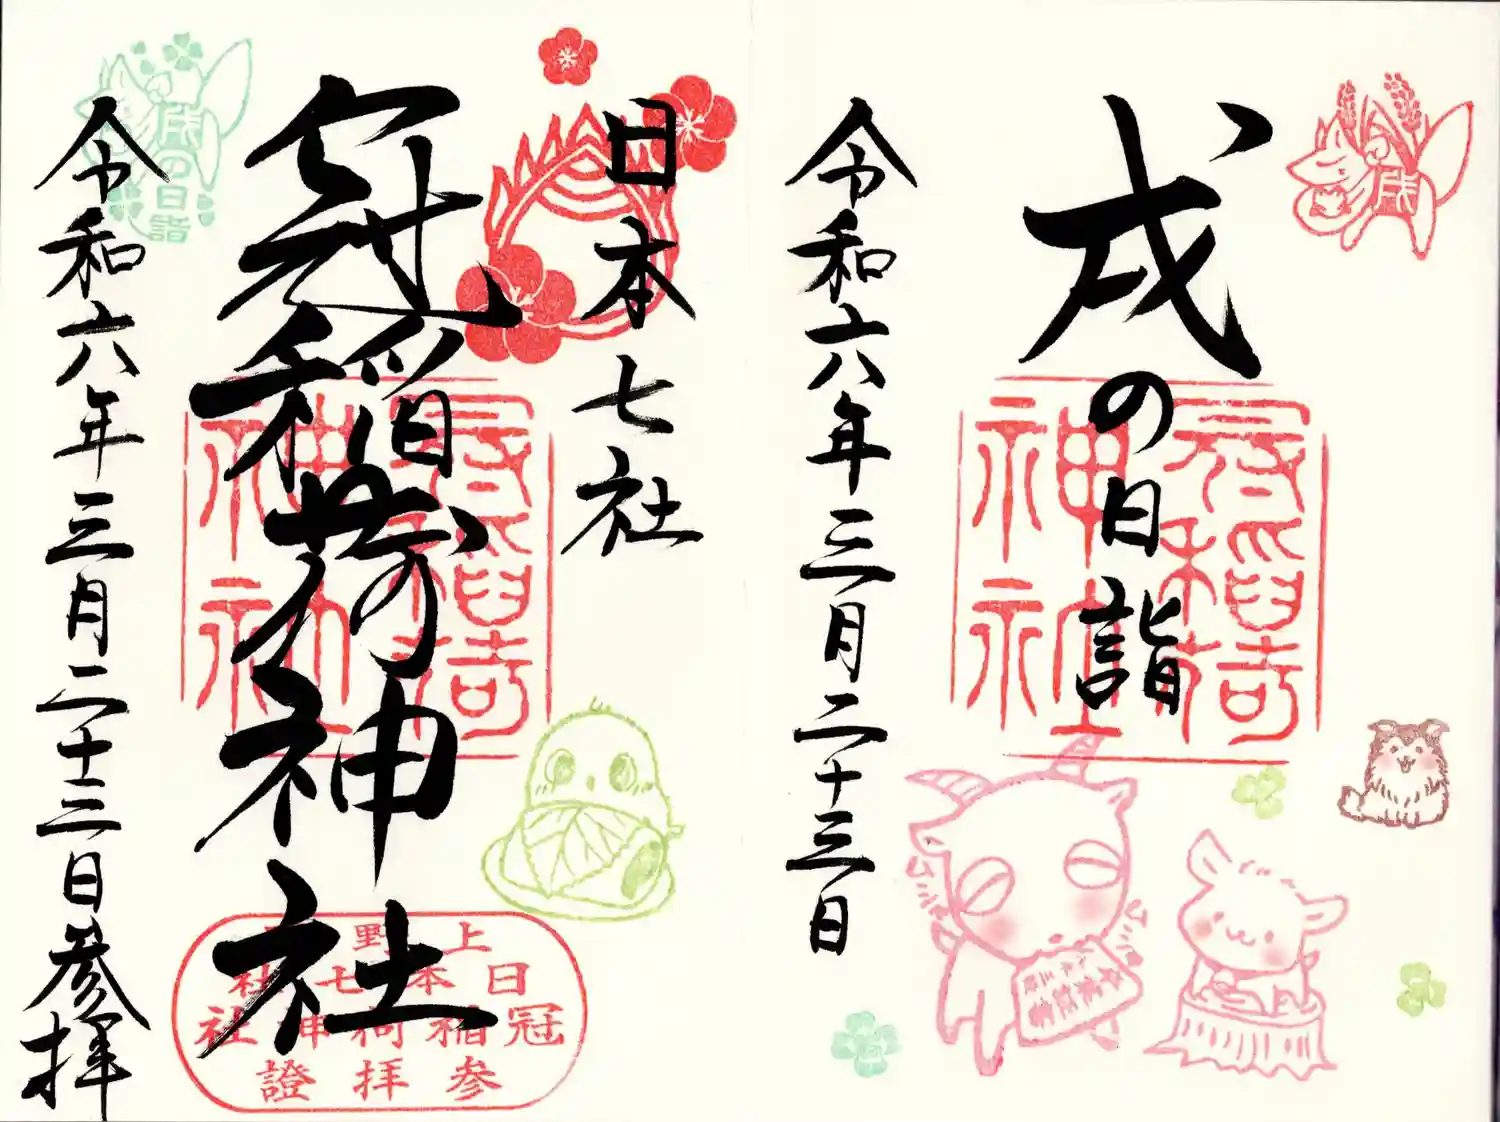 戌
戌の日詣
令和六年三月二十三日
日本七社
冠稲荷神社
令和六年三月二十三日参拝
戌の日詣
冠稲荷神社
冠稲荷神社
上野
日本七社
冠稲荷神社
参拝證